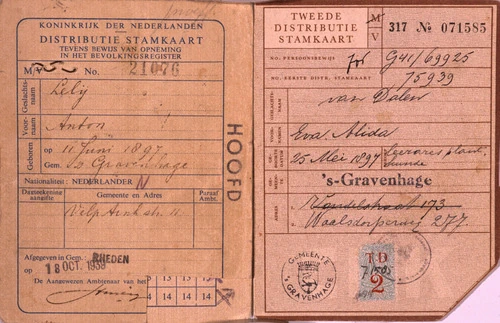 KONINKRIJK DER NEDERLANDEN
DISTRIBUTIE STAMKAART
TEVENS BEWIJS VAN OPNEMING
IN HET BEVOLKINGSREGISTER
M/V No. 21076
Geslachts-naam Lelij
Voor-naam Anton
Geboren op 11 Juni 1897
Gem. 's Gravenhage
Nationaliteit: NEDERLANDER N
Dagteekening aangifte Gemeente en Adres Paraaf Ambt.
Velp
Afgegeven in Gem.: RHEDEN
op 18 OCT. 1939
De Aanwezen Ambtenaar van het
14 14 14 14
HOOFD
TWEEDE
DISTRIBUTIE
STAMKAART
M/V
317 No 071585
NO. PERSOONSBEWIJS G41/69925
NO. EERSTE DISTR. STAMKAART 75939
GESLACHTS-NAAM van Dalen
VOOR-NAMEN Eva Alida
25 Mei 1897 Leerares plant
kunde
's-Gravenhage
ADRES 173
Waalsdorperweg 277.
GEMEENTE
'S GRAVENHAGE
TD
2